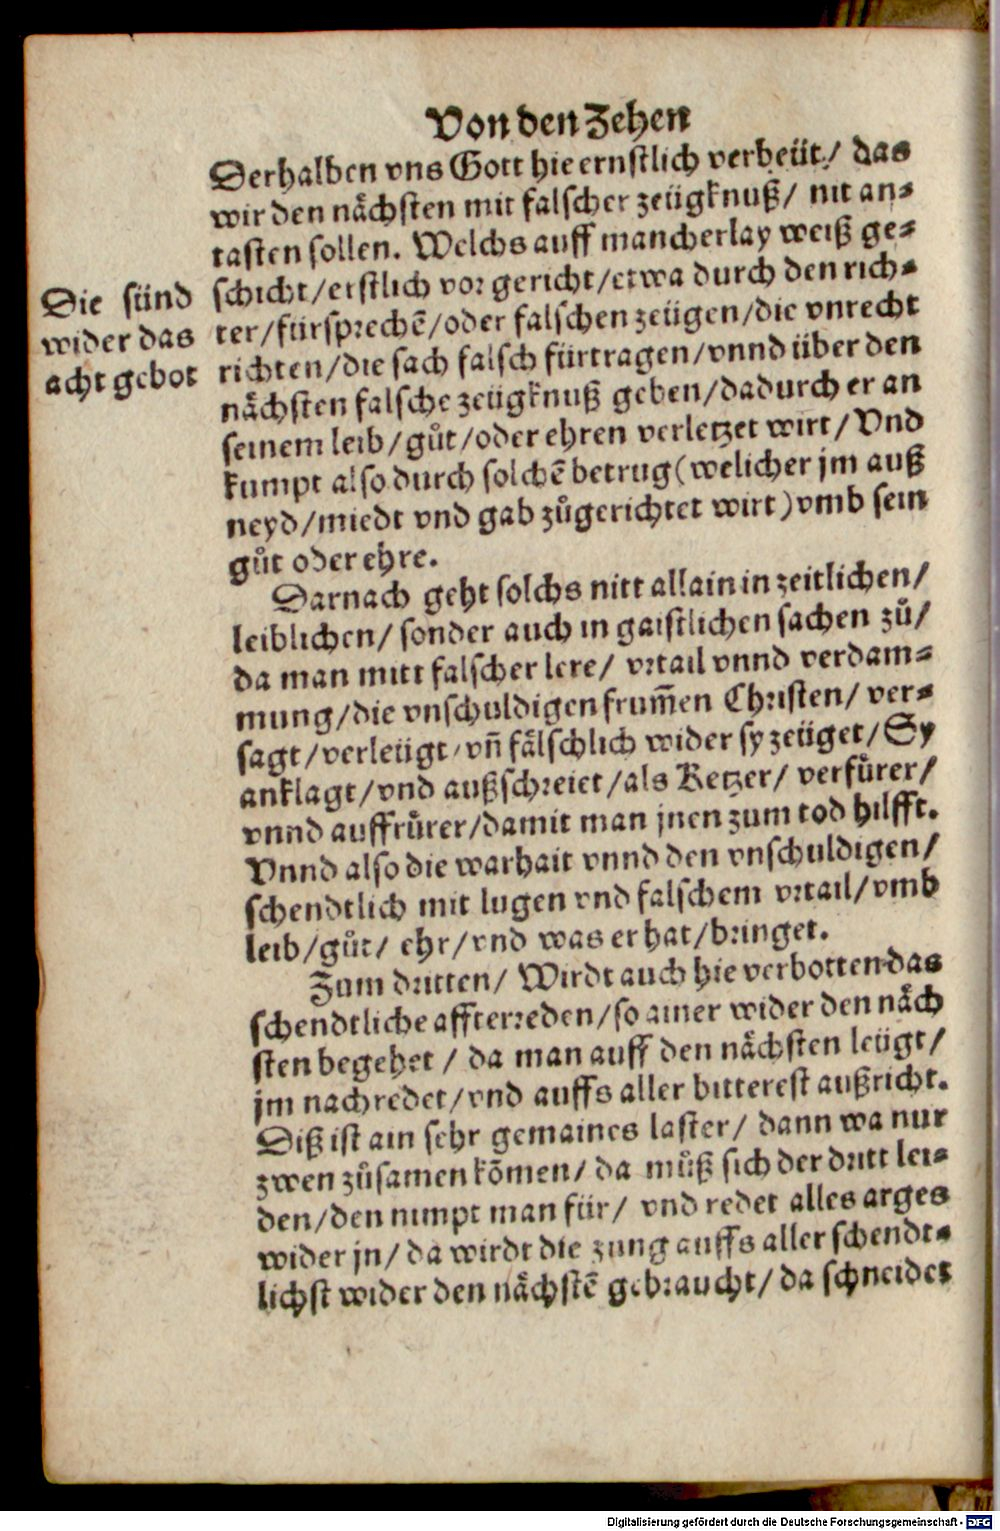 Von den Zehen
Derhalben vns Gott hie ernstlich verbeüt / das
wir den nächsten mit falscher zeügknuß / nit an-
tasten sollen. Welchs auff mancherlay weiß ge-
schicht / erstlich vor gericht / etwa durch den rich-
ter / fürsprechē / oder falschen zeügen / die vnrecht
richten / die sach falsch fürtragen / vnnd über den
nächsten falsche zeügknuß geben / dadurch er an
seinem leib / gůt / oder ehren verletzet wirt / Vnd
kumpt also durch solchē betrug (welicher jm auß
neyd / miedt vnd gab zůgerichtet wirt) vmb sein
gůt oder ehre.
Die sünd
wider das
acht gebot
Darnach geht solchs nitt allain in zeitlichen /
leiblichen / sonder auch in gaistlichen sachen zů /
da man mitt falscher lere / vrtail vnnd verdam-
mung / die vnschuldigen frum̄en Christen / ver-
sagt / verleügt / vn̄ fälschlich wider sy zeüget / Sy
anklagt / vnd außschreiet / als Ketzer / verfůrer /
vnnd auffrůrer / damit man jnen zum tod hilfft.
Vnnd also die warhait vnnd den vnschuldigen /
schendtlich mit lugen vnd falschem vrtail / vmb
leib / gůt / ehr / vnd was er hat / bringet.
Zum dritten / Wirdt auch hie verbotten das
schendtliche affterreden / so ainer wider den näch
sten begehet / da man auff den nächsten leügt /
jm nachredet / vnd auffs aller bitterest außricht.
Diß ist ain sehr gemaines laster / dann wa nur
zwen zůsamen kōmen / da můß sich der dritt lei-
den / den nimpt man für / vnd redet alles arges
wider jn / da wirdt die zung auffs aller schendt-
lichst wider den nächstē gebraucht / da schneidet
Digitalisierung gefördert durch die Deutsche Forschungsgemeinschaft - DFG